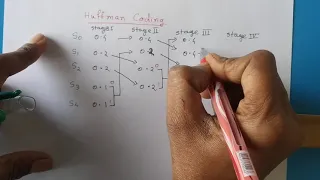 Huffman Coding
stage I stage II stage III stage IV
S0 0.4 0.4 0.4
S1 0.2 0.2 0.4
S2 0.2 0.2
S3 0.1 0.2
S4 0.1